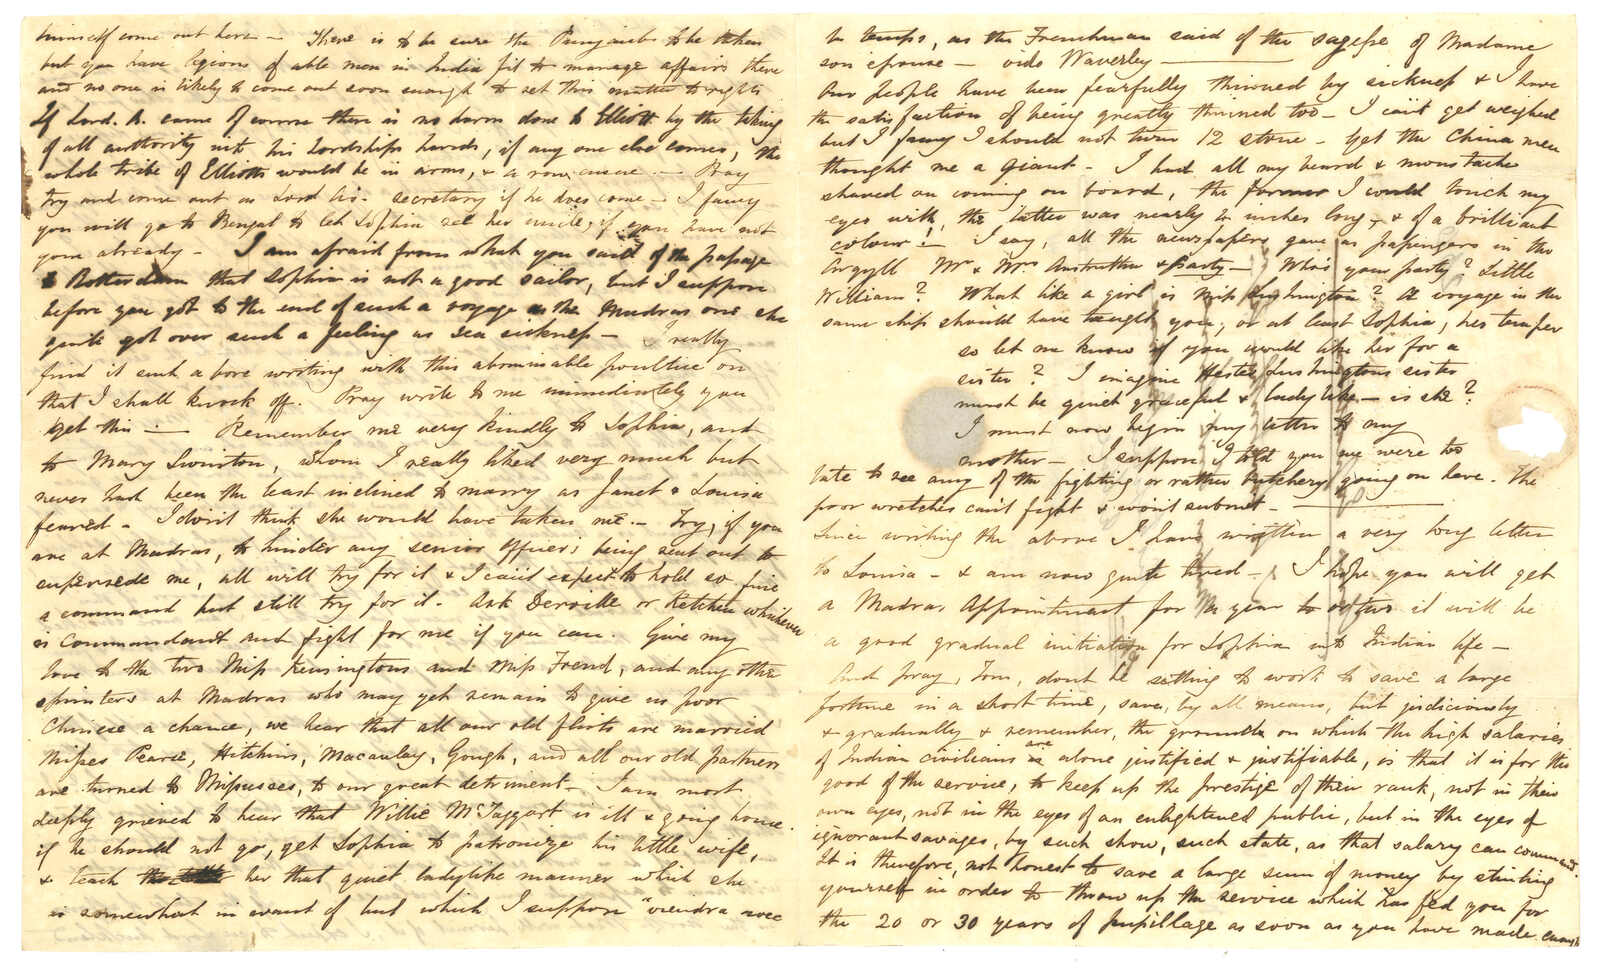 himself come out here – There is to be sure the Punjaub to be taken
but you have legions of able men in India fit to manage affairs there
and no one is likely to come out soon enough to set this matter to rights
If Lord. A. came of course there is no harm done to Elliott by the taking
of all authority into his Lordships hands, if any one else comes, the
whole tribe of Elliotts would be in arms, & a row ensue. – Pray
try and come out as Lord A's. secretary if he does come – I fancy
you will go to Bengal to let Sophia see her uncle, if you have not
gone already – I am afraid from what you said of the passage
to Rotterdam that Sophia is not a good sailor, but I suppose
before you got to the end of such a voyage as the Madras one she
quite got over such a feeling as sea sickness – I really
find it such a bore writing with this abominable poultice on
that I shall knock off. Pray write to me immediately you
get this – Remember me very kindly to Sophia, and
to Mary Swinton, whom I really liked very much but
never had been the least inclined to marry as Janet & Louisa
feared – I don't think she would have taken me – Try, if you
are at Madras, to hinder any senior officer's being sent out to
supersede me, all will try for it & I can't expect to hold so fine
a command but still try for it. Ask Derville or Ketchen whichever
is Commandant and fight for me if you can. Give my
love to the two Miss Kensingtons and Miss Frend, and any other
spinsters at Madras who may yet remain to give us poor
Chinese a chance, we hear that all our old flirts are married
Misses Pearce, Hitchins, Macaulay, Gough, and all our old partners
are turned to Missusses, to our great detriment – I am most
deeply grieved to hear that Willie McTaggart is ill & going home.
if he should not go, get Sophia to patronize his little wife,
& teach her that quiet ladylike manner which she
is somewhat in want of but which I suppose "viendra avec
le temps, as the Frenchman said of the sagesse of Madame
son epouse – vide Waverley –
Our people have been fearfully thinned by sickness & I have
the satisfaction of being greatly thinned too – I can't get weighed
but I fancy I should not turn 12 stone – Yet the China men
thought me a Giant – I had all my beard & moustache
shaved on coming on board, the former I could touch my
eyes with, the latter was nearly inches long, & of a brilliant
colour! I say, all the newspapers gave as passengers in the
Argyll Mr & Mrs Anstruther & party – Who's your party? Little
William? What like a girl is Miss Lushington? A voyage in the
same ship should have taught you, or at least Sophia, her temper
so let me know if you would like her for a
sister? I imagine Hester Lushingtons sister
must be quiet graceful & lady like – is she?
I must now begin my letter to my
mother – I suppose I told you we were too
late to see any of the fighting or rather butchery going on here. The
poor wretches can't fight & won't submit –
Since writing the above I have written a very long letter
to Louisa – & am now quite tired – I hope you will get
a Madras Appointment for a year or two it will be
a good gradual initiation for Sophia into Indian life –
And pray, Tom, dont be setting to work to save a large
fortune in a short time, save, by all means, but judiciously
& gradually & remember, the grounds on which the high salaries
of Indian Civilians are alone justified & justifiable, is that it is for the
good of the service, to keep up the prestige of their rank, not in their
own eyes, not in the eyes of an enlightened public, but in the eyes of
ignorant savages, by such show, such state, as that salary can command.
It is therefore, not honest to save a large sum of money by stinting
yourself in order to throw up the service which has fed you for
the 20 or 30 years of pupillage as soon as you have made enough